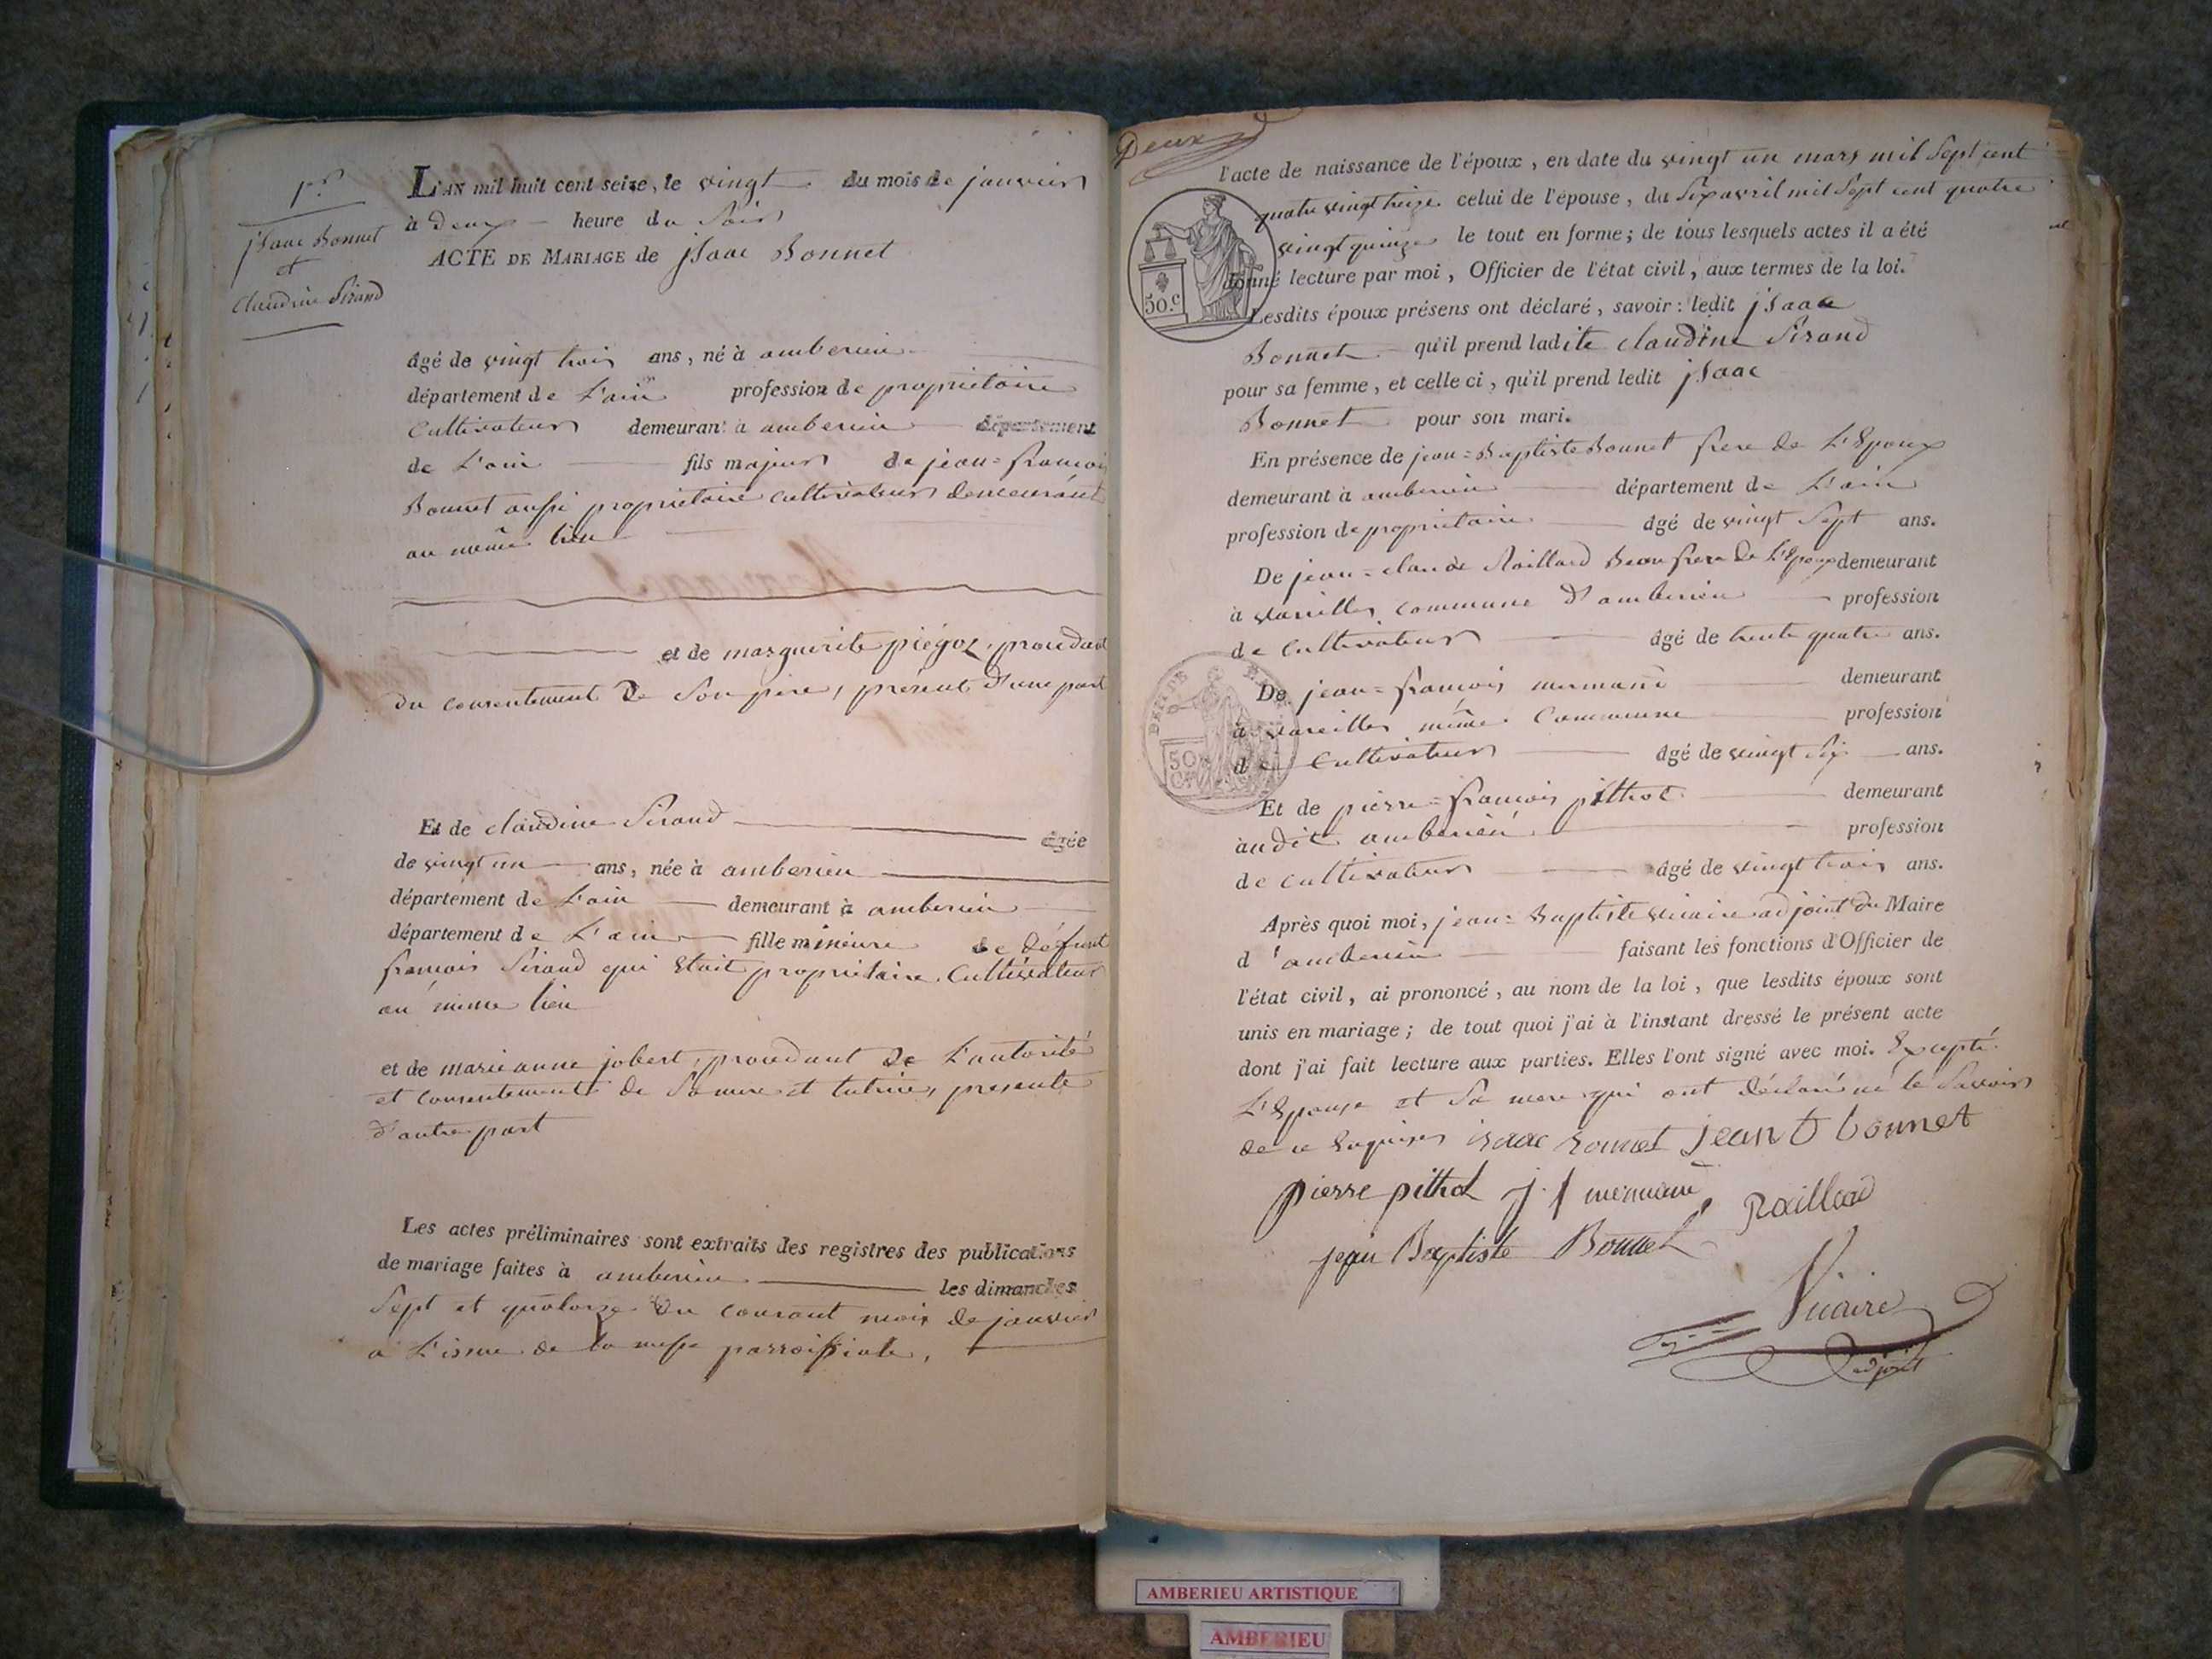 1er
isaac Bonnet
et
Claudine Sirand
L'AN mil huit cent seize, le vingt du mois de janvier
à deux heure du soir
ACTE DE MARIAGE de isaac Bonnet
âgé de vingt trois ans, né à amberieu
département de L'ain profession de proprietaire
Cultivateur demeurant à amberieu département
de L'ain fils majeur de jean-françois
Bonnet aussi proprietaire cultivateur demeurant
au même lieu
et de marguerite piégoz, procedant
du consentement de Son pere, présent d'une part
Et de claudine Sirand âgée
de vingt un ans, née à amberieu
département de L'ain demeurant à amberieu
département de L'ain fille mineure de défunt
françois Sirand qui Etait proprietaire Cultivateur
au même lieu
et de marianne jobert, procedant de L'autorité
et consentement de Sa mere et tutrice, presente
d'autre part
Les actes préliminaires sont extraits des registres des publications
de mariage faites à amberieu les dimanches
Sept et quatorze du courant mois de janvier
a L'issue de la messe parroissiale,
Deux
l'acte de naissance de l'époux, en date du vingt un mars mil Sept cent
quatre vingt treize celui de l'épouse, du Six avril mil Sept cent quatre
vingt quinze le tout en forme; de tous lesquels actes il a été
donné lecture par moi, Officier de l'état civil, aux termes de la loi.
50.c
Lesdits époux présens ont déclaré, savoir : ledit isaac
Bonnet qu'il prend ladite claudine Sirand
pour sa femme, et celle ci, qu'il prend ledit isaac
Bonnet pour son mari.
En présence de jean-Baptiste Bonnet frere de L'Epoux
demeurant à amberieu département de L'ain
profession de proprietaire âgé de vingt Sept ans.
De jean-claude Raillard Beaufrere de L'Epoux demeurant
à vareilles commune d'amberieu profession
de Cultivateur âgé de trente quatre ans.
De jean-françois mermand demeurant
à vareilles même Commune profession
de Cultivateur âgé de vingt Six ans.
50
Et de pierre-françois pithot demeurant
audit amberieu profession
de cultivateur âgé de vingt trois ans.
Après quoi moi, jean-Baptiste vicaire adjoint du Maire
d'amberieu faisant les fonctions d'Officier de
l'état civil, ai prononcé, au nom de la loi, que lesdits époux sont
unis en mariage; de tout quoi j'ai à l'instant dressé le présent acte
dont j'ai fait lecture aux parties. Elles l'ont signé avec moi. Excepté
L'Epouse et Sa mere qui ont déclaré ne le Savoir
de ce Enquises isaac bonnet jean f bonnet
pierre pithot j. f mermand Raillard
jean Baptiste Bonnet
Vicaire
adjoint
AMBERIEU ARTISTIQUE
AMBERIEU